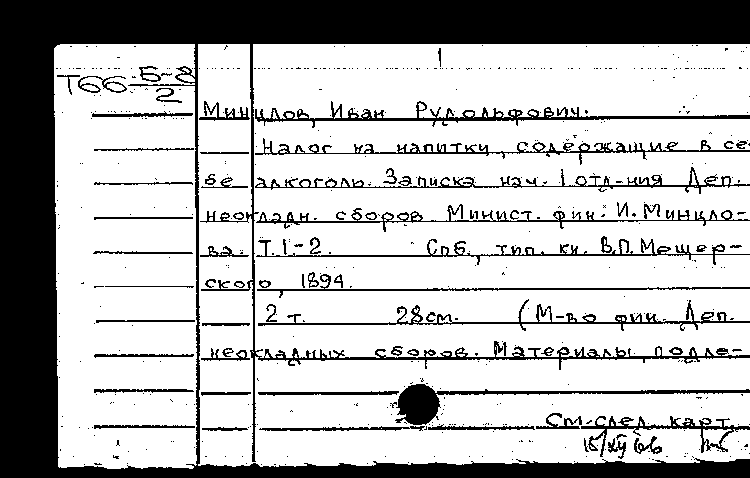 Т66 5-8/2
Минцлов, Иван Рудольфович.
Налог на напитки, содержащие в се-
бе алкоголь. Записка нач. 1 отд-ния Деп.
неокладн. сборов Минист. фин. И. Минцло-
ва. Т.1-2. Спб., тип. кн. В.П. Мещер-
ского, 1894.
2 т. 28см. (М-во фин. Деп.
неокладных сборов. Материалы, подле-
См. след. карт.
15/XII 66